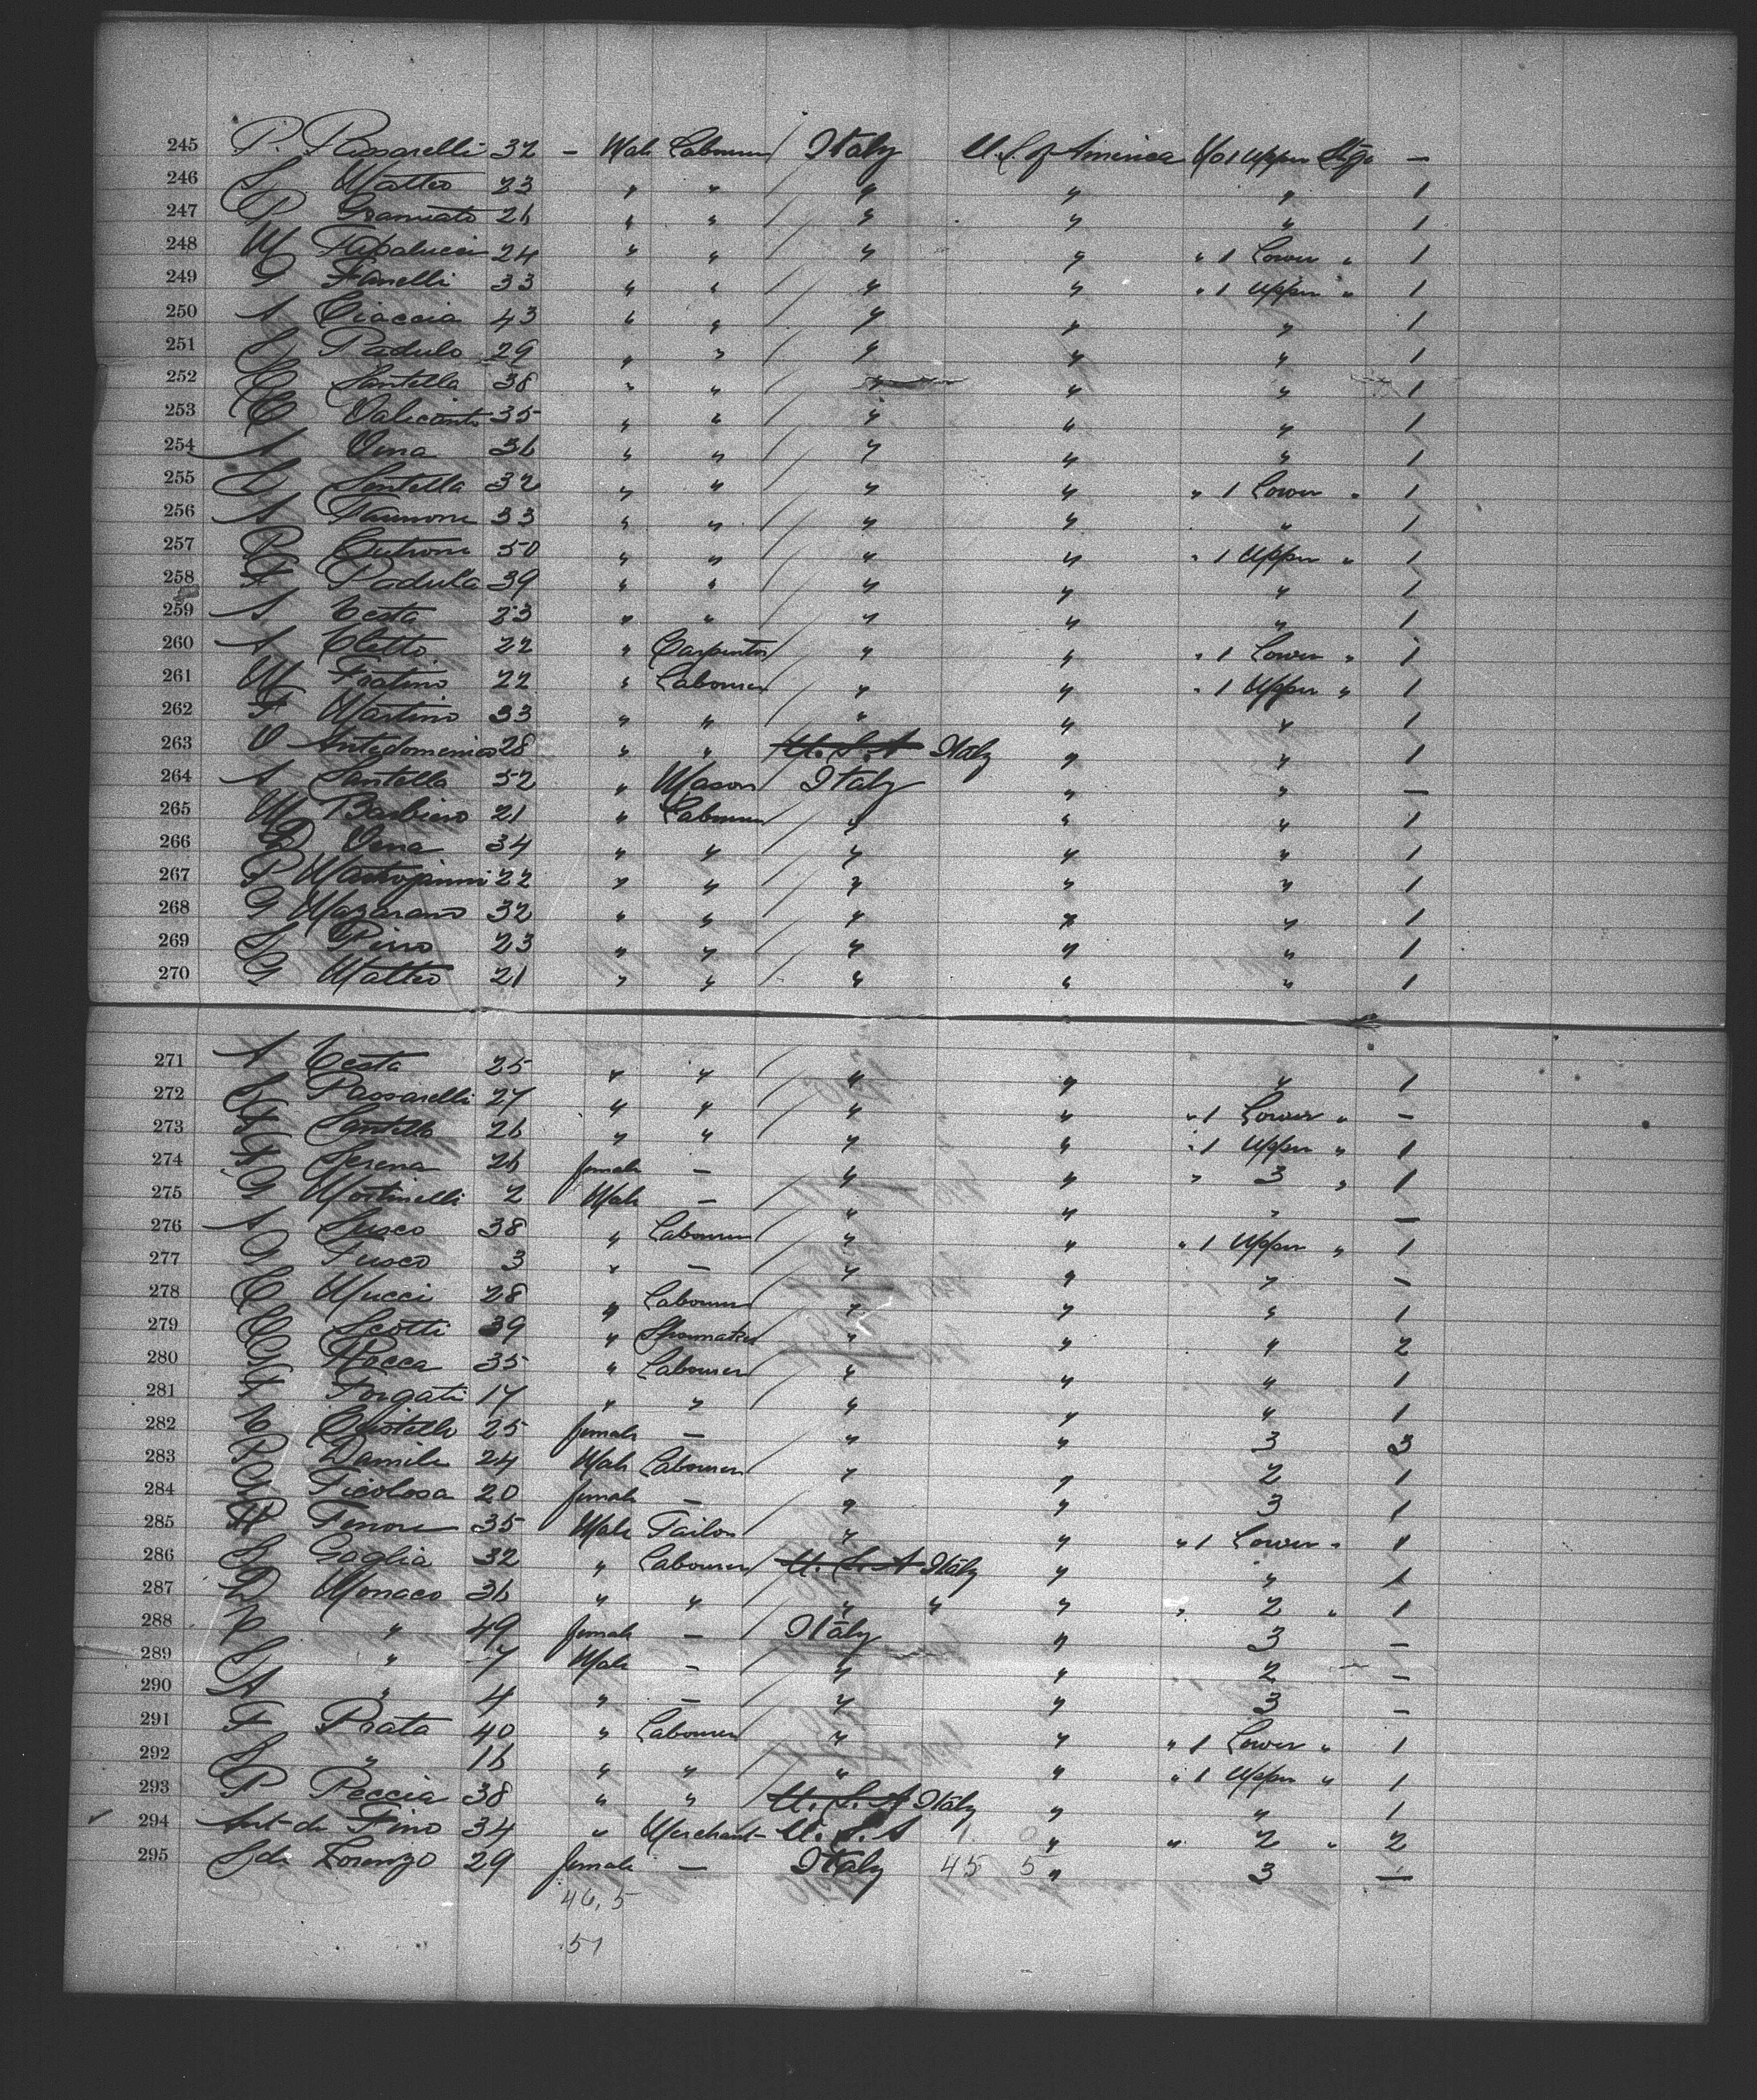 245 P. Passarelli 32 - Male Labourer Italy U.S. of America No 1 Upper Stge -
246 S Matteo 23 " " " " " 1
247 P Gramiato 26 " " " " " 1
248 M 24 " " " " " 1 Lower " 1
249 G Fanelli 33 " " " " " 1 Upper " 1
250 A Ciaccia 43 " " " " " 1
251 S Padulo 29 " " " " " 1
252 C Santella 38 " " " " " 1
253 C Valicenti 35 " " " " " 1
254 A Vena 36 " " " " " 1
255 L Santella 32 " " " " " 1 Lower " 1
256 A Iannone 33 " " " " " 1
257 B Cutrone 50 " " " " " 1 Upper " 1
258 F Padulla 39 " " " " " 1
259 A Testa 23 " " " " " 1
260 A Cletto 22 " Carpenter " " " 1 Lower " 1
261 M Fratino 22 " Labourer " " " 1 Upper " 1
262 F Martino 33 " " " " " 1
263 V Antedomenico 28 " " U.S.A Italy " " 1
264 A Santella 52 " Mason Italy " " -
265 M Barbiero 21 " Labourer " " " 1
266 D Vena 34 " " " " " 1
267 P Mastrojanni 22 " " " " " 1
268 G Mazarano 32 " " " " " 1
269 S Pirro 23 " " " " " 1
270 G Matteo 21 " " " " " 1
271 A Testa 25 " " " " " 1
272 S Passarelli 27 " " " " " 1 Lower " -
273 F Santella 26 " " " " " 1 Upper " 1
274 F Serena 26 female - " " " 3 " 1
275 G Martinelli 2 Male - " " " -
276 A Fusco 38 " Labourer " " " 1 Upper " 1
277 G Fusco 3 " - " " " -
278 C Mucci 28 " Labourer " " " 1
279 C Scotti 39 " Shoemaker " " " 2
280 G Rocca 35 " Labourer " " " 1
281 F Forgati 17 " " " " " 1
282 C 25 female - " " 3 3
283 P Damile 24 Male Labourer " " 2 1
284 G Ficolosa 20 female - " " 3 1
285 35 Male Tailor " " " 1 Lower " 1
286 S Gaglia 32 " Labourer U.S.A Italy " " 1
287 D Monaco 36 " " " " " " 2 " 1
288 C " 49 female - Italy " 3 -
289 S " 7 Male - " " 2 -
290 A " 4 " - " " 3 -
291 F Prata 40 " Labourer " " " 1 Lower " 1
292 S " 16 " " " " " 1 Upper " 1
293 P Peccia 38 " " U.S.A Italy " " 1
294 Ant. de Fino 34 " Merchant U.S.A 1 0 " " 2 " 2
295 S di Lorenzo 29 female - Italy 45 5 " 3 -
46.5
51